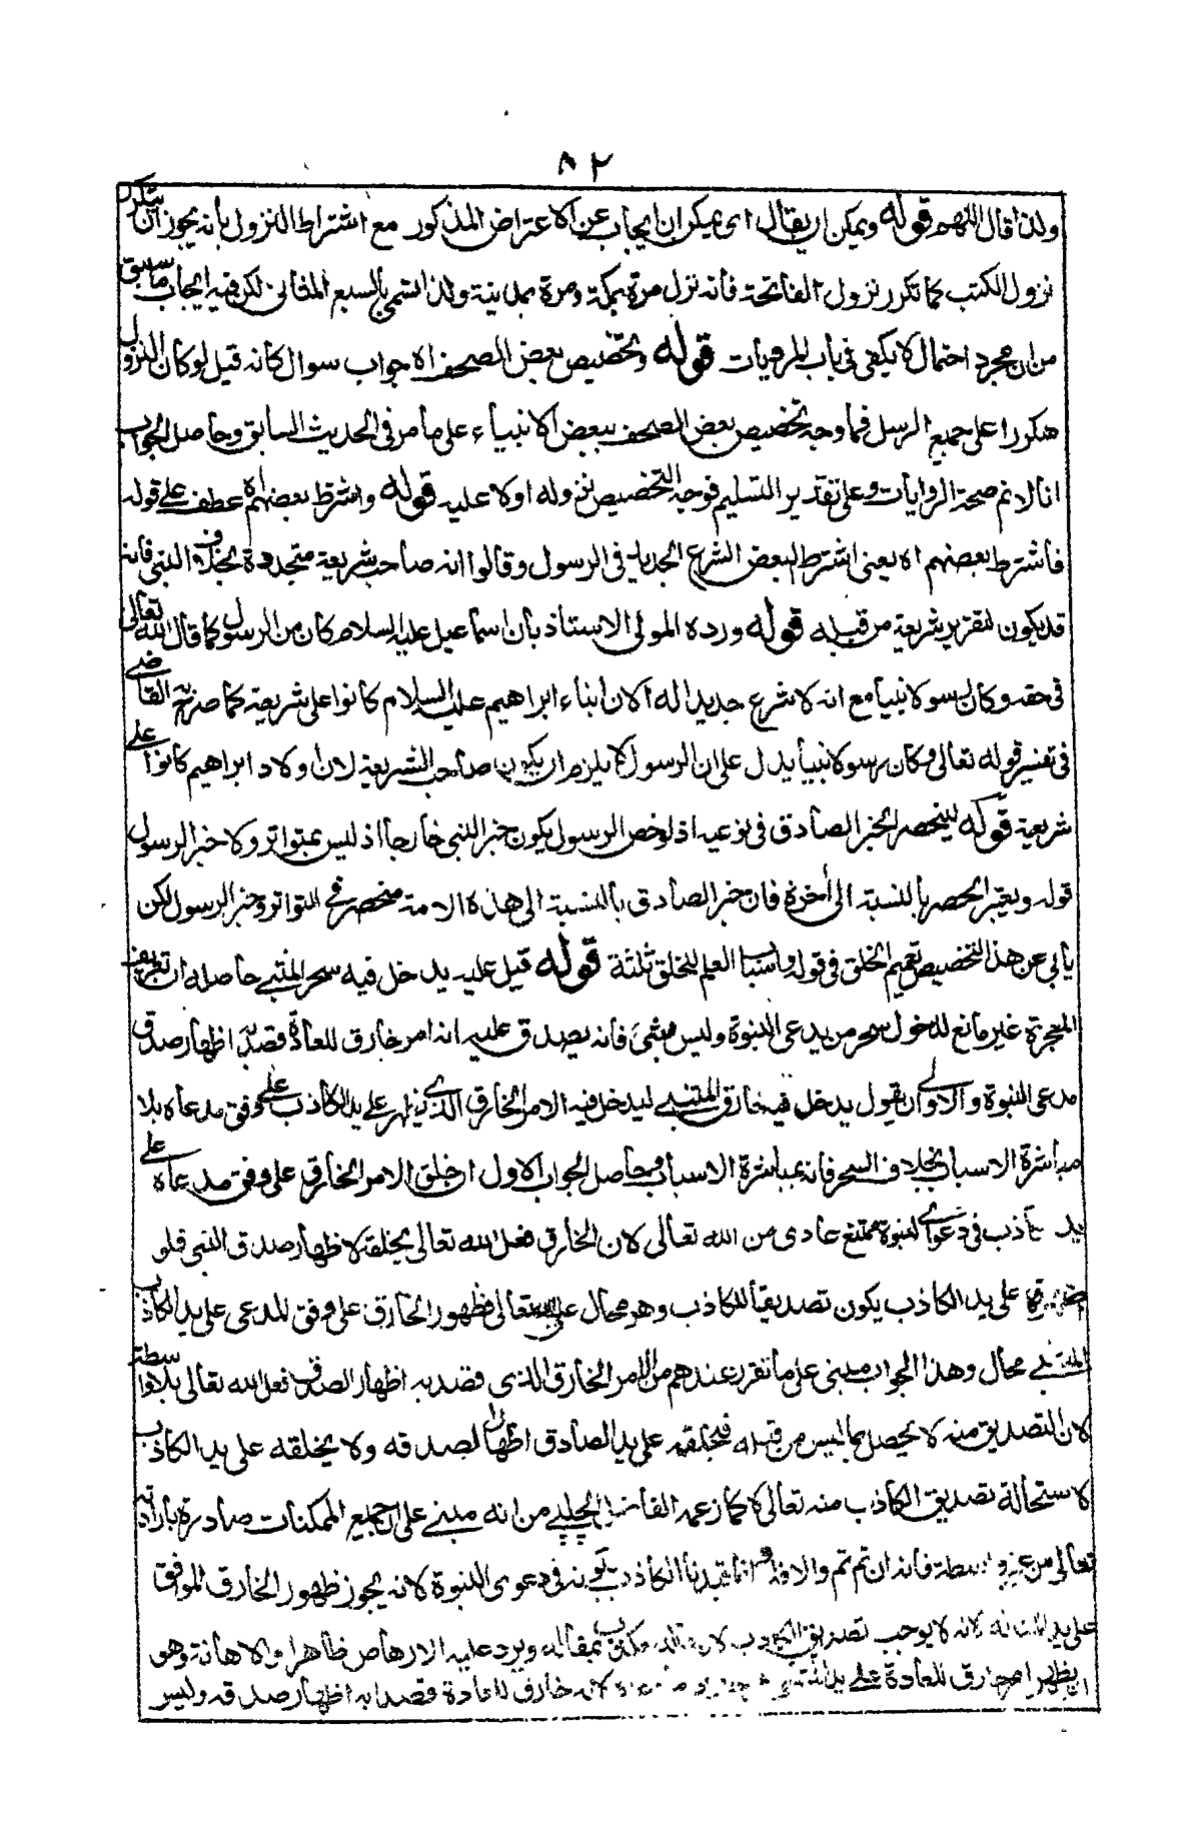 ٨٢
ولذا قال اللهم قوله ويمكن ان يقال اى يمكن ان يجاب عن الاعتراض المذكور مع اشتراط النزول بأنه يجوز ان يتكرر
نزول الكتب كما تكرر نزول الفاتحة فانه نزل مرة بمكة ومرة بمدينة ولذا اسمى بالسبع المثاني لكن فيه ايجاب ما سبق
من ان مجرد احتمال لا يكفى فى باب المرويات قوله وتخصيص بعض الصحف اه جواب سوال كانه قيل لو كان النزول
مكررا على جميع الرسل فما وجه تخصيص بعض الصحف ببعض الانبياء على ما مر فى الحديث السابق وحاصل الجواب
انا لا نم صحة الروايات وعلى تقدير التسليم فوجه التخصيص نزوله اولا عليه قوله واشترط بعضهم اه عطف على قوله
فاشترط بعضهم اه يعنى اشترط البعض الشرع الجديد فى الرسول وقالوا انه صاحب شريعة متجددة بخلاف النبى فانه
قد يكون لتقرير شريعة من قبله قوله ورده المولى الاستاذ بأن اسماعيل عليه السلام كان من الرسول كما قال الله تعالى
فى حقه وكان رسولا نبيا مع انه لا شرع جديد اله الان ابناء ابراهيم عليه السلام كانوا على شريعة كما صرح به القاضى
فى تفسير قوله تعالى وكان رسولا نبيا يدل على ان الرسول لا يلزم ان يكون صاحب الشريعة لان اولاد ابراهيم كانوا على
شريعة قوله لينحصر الخبر الصادق فى نوعيه اذ لو خص الرسول يكون خبر النبى خارجا اذ ليس بمتواتر ولا خبر الرسول
قوله ويعتبر الحصر بالنسبة الى أخره فان خبر الصادق بالنسبة الى هذه الامة منحصر فى التواتر وخبر الرسول لكن
يأبى عن هذا التخصيص تعميم الخلق فى قوله واسباب العلم للخلق ثلثة قوله قيل عليه يدخل فيه سحر المتنبى حاصله ان تعريف
المعجزة غير مانع لدخول سحر من يدعى النبوة وليس بنبى فانه يصدق عليه انه امر خارق للعادة قصد به اظهار صدق
مدعى النبوة والاولى ان يقول يدخل فيه خارق المتنبى ليدخل فيه الامر الخارق الذى يظهر على يد الكاذب على وفق مدعاه بلا
مباشرة الاسباب بخلاف السحر فانه بمباشرة الاسباب وحاصل الجواب الاول ان خلق الامر الخارق على وفق مدعاه على
يد كاذب فى دعوى النبوة ممتنع عادى من الله تعالى لان الخارق فعل الله تعالى يخلقه لاظهار صدق النبى فلو
على يد الكاذب يكون تصديقا للكاذب وهو محال على الله تعالى فظهور الخارق على وفق المدعى على يد الكاذب
المتنبى محال وهذا الجواب مبنى على ما تقرر عندهم من ان الامر الخارق الذى قصد به اظهار الصدق فعل الله تعالى بلا واسطة
لان التصديق منه لا يحصل بما ليس من قبله فيخلقه على يد الصادق اظهارا لصدقه ولا يخلقه على يد الكاذب
لاستحالة تصديق الكاذب منه تعالى لا كما زعمه الفاضل الجلبى من انه مبنى على ان جميع الممكنات صادرة بارادته
تعالى من غير واسطة فانه ان تم تم والا فلا الكاذب فى دعوى النبوة لانه يجوز ظهور الخارق الموافق
على يد لانه لا يوجب تصديق الكاذب بمقاله ويرد عليه الارهاص ظاهرا والاهانة وهو
ان يظهر امر خارق للعادة على يد خارق للعادة قصد به اظهار صدقه وليس